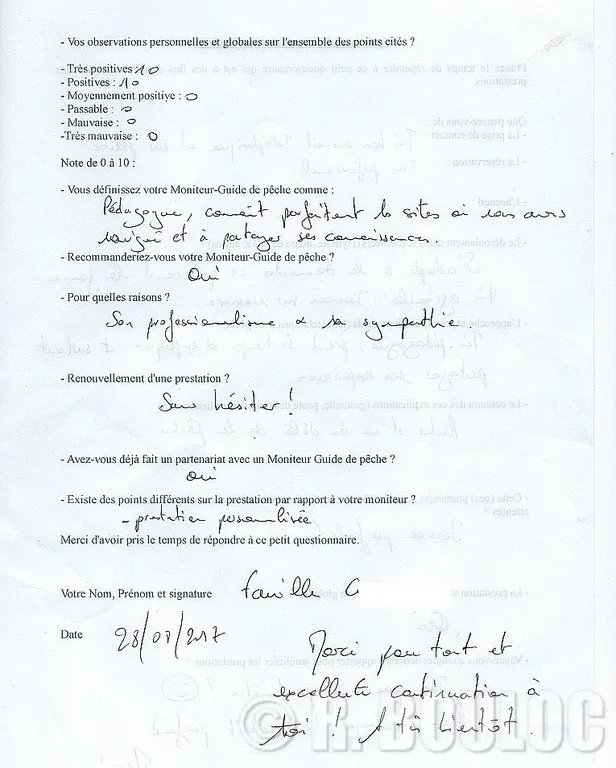 - Vos observations personnelles et globales sur l'ensemble des points cités ?
- Très positives : 10
- Positives : 10
- Moyennement positive : 0
- Passable : 0
- Mauvaise : 0
-Très mauvaise : 0
Note de 0 à 10 :
- Vous définissez votre Moniteur-Guide de pêche comme :
Pédagogue, connait parfaitement les sites où nous avons
navigué et à partager ses connaissances.
- Recommanderiez-vous votre Moniteur-Guide de pêche ?
Oui
- Pour quelles raisons ?
Son professionnalisme & sa sympathie.
- Renouvellement d'une prestation ?
Sans hésiter !
- Avez-vous déjà fait un partenariat avec un Moniteur Guide de pêche ?
oui
- Existe des points différents sur la prestation par rapport à votre moniteur ?
- prestation personnalisée
Merci d'avoir pris le temps de répondre à ce petit questionnaire.
Votre Nom, Prénom et signature famille C
Date 28/07/2017
Merci pour tout et
excellente continuation à
toi ! A très bientôt.
© R. BOULOC